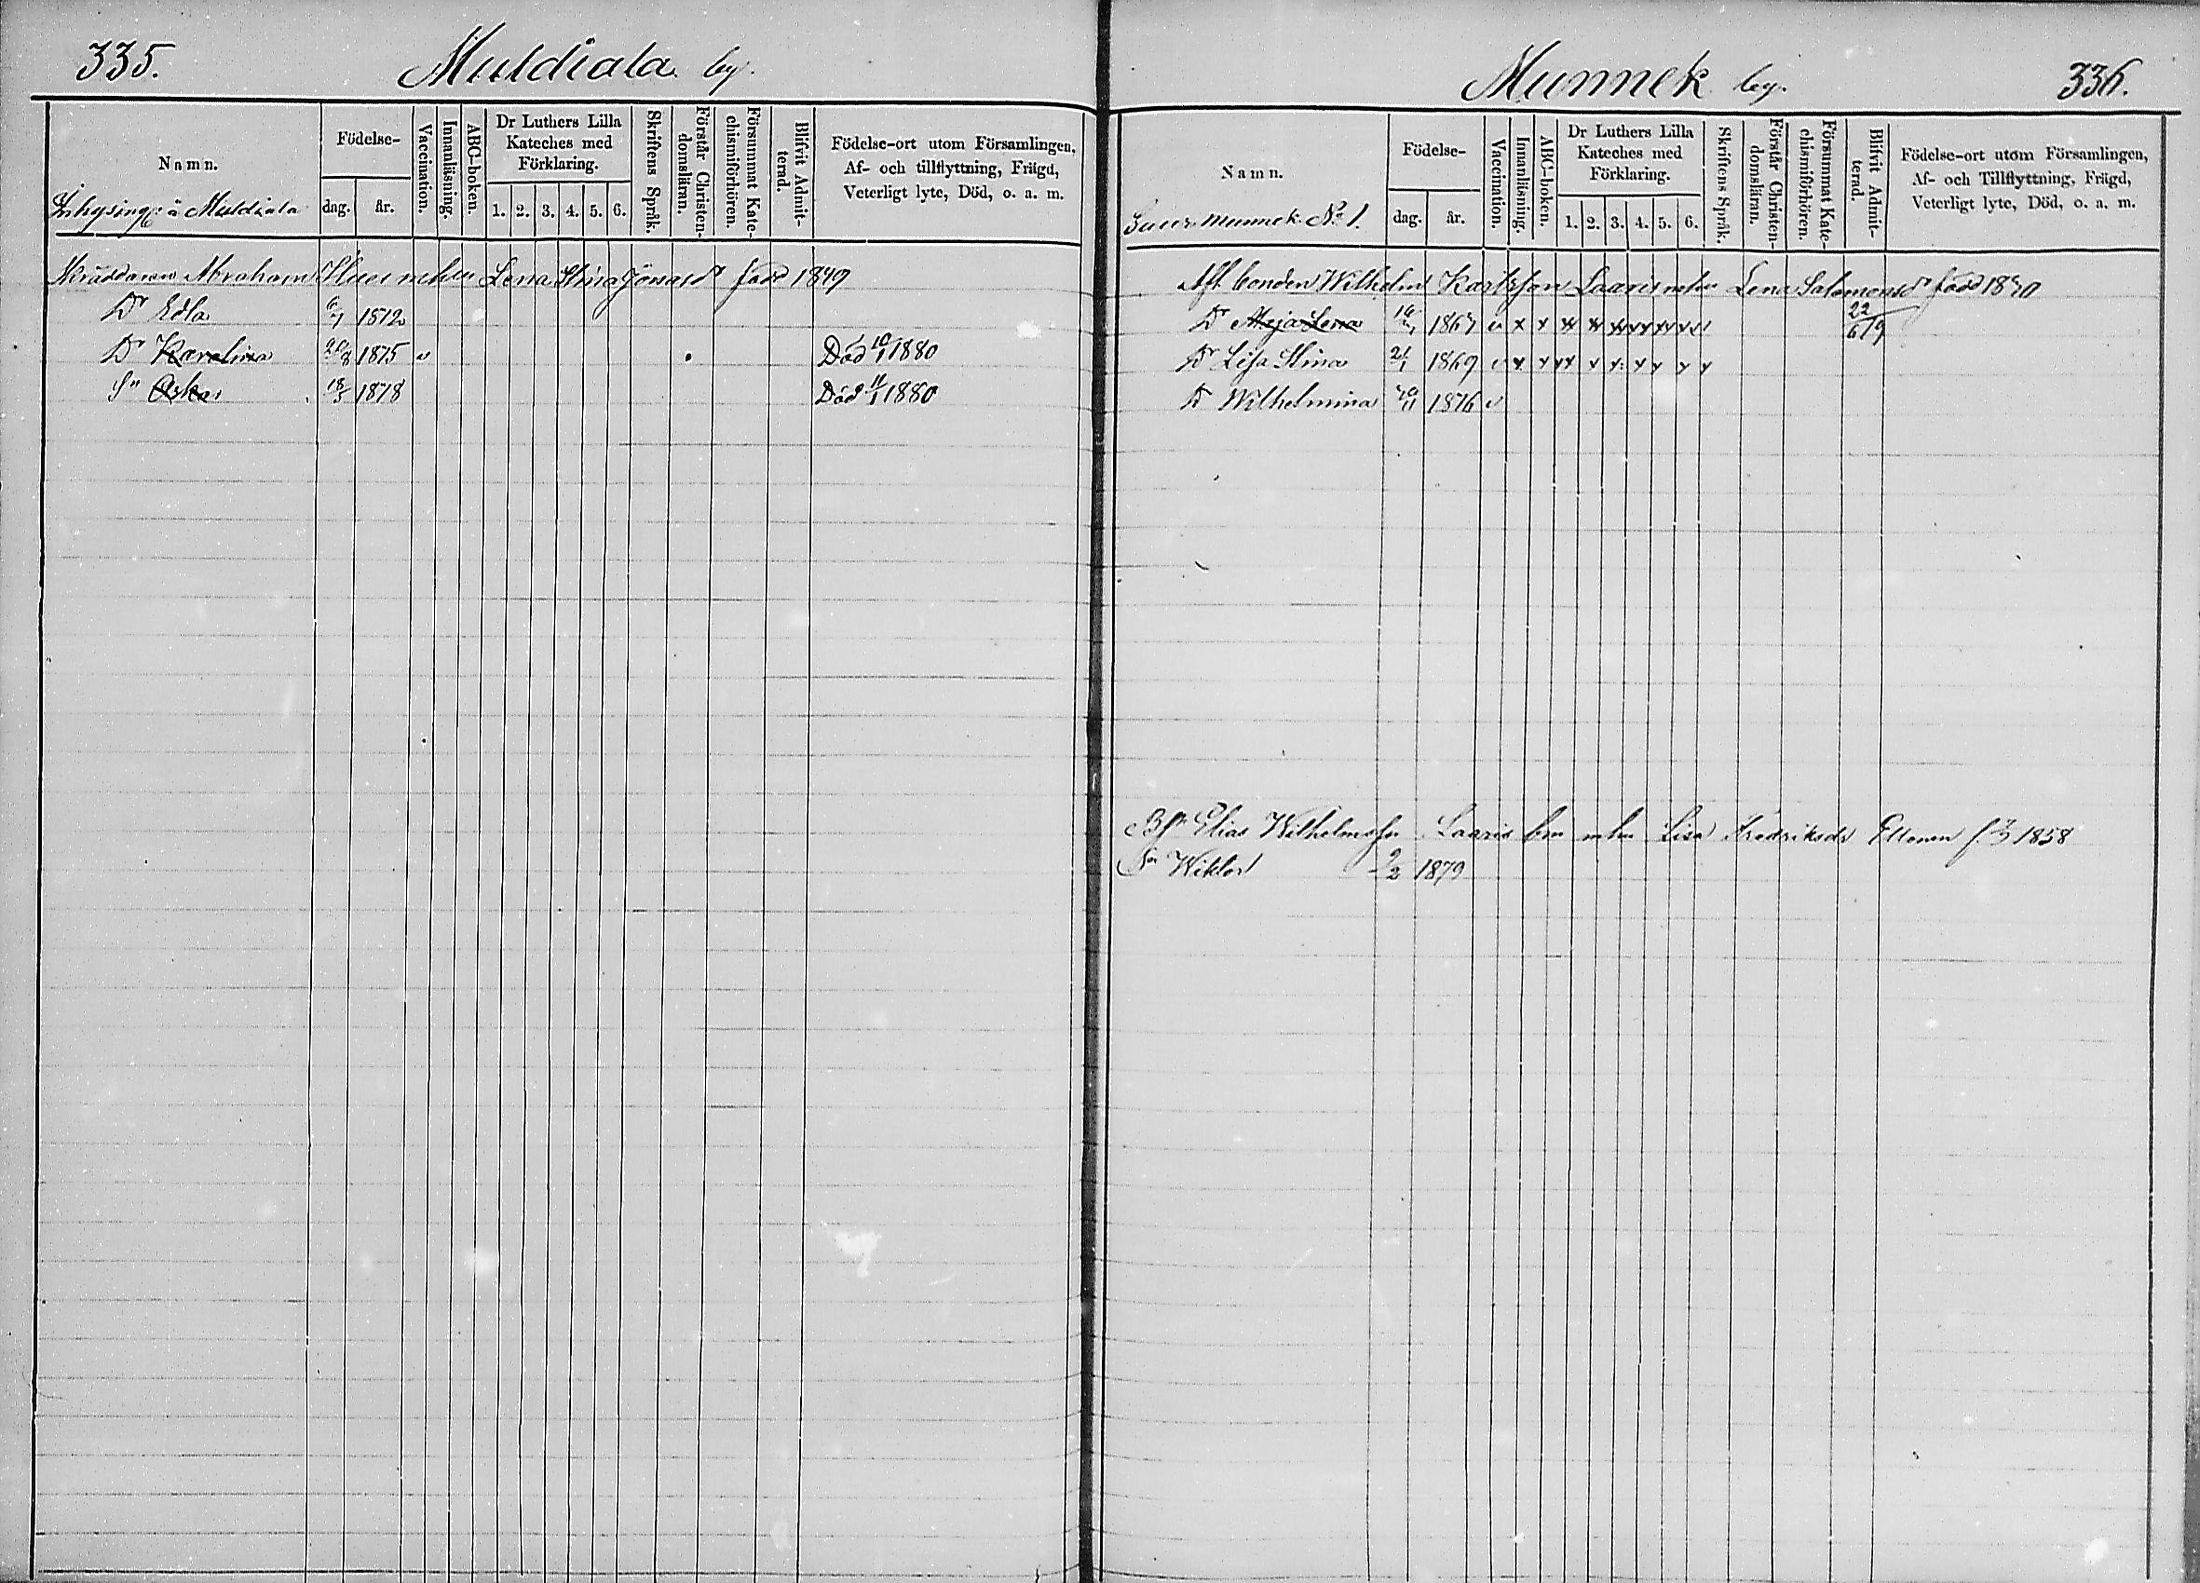 335.
Muldiala by.
Namn.
Födelse-
dag. år.
Vaccination.
Innanläsning.
ABC-boken.
Dr Luthers Lilla
Kateches med
Förklaring.
1. 2. 3. 4. 5. 6.
Skriftens Språk.
Förstår Christen-
domsläran.
Försummat Kate-
chismiförhören.
Blifvit Admit-
terad.
Födelse-ort utom Församlingen,
Af- och tillflyttning, Frägd,
Veterligt lyte, Död, o. a. m.
Inhysing: å Muldiala
Skräddaren Abraham mhu Lena Stina Jonasdr född 1849
Dr Edla 6/1 1872
Dr Karolina 1875 v Död 10/1 1880
Sn Oskar 18/3 1878 Död 11/1 1880
Munnek by.
336.
Namn.
Födelse-
dag. år.
Vaccination.
Innanläsning.
ABC-boken.
Dr Luthers Lilla
Kateches med
Förklaring.
1. 2. 3. 4. 5. 6.
Skriftens Språk.
Förstår Christen-
domsläran.
Försummat Kate-
chismiförhören.
Blifvit Admit-
terad.
Födelse-ort utom Församlingen,
Af- och Tillflyttning, Frägd,
Veterligt lyte, Död, o. a. m.
Munnek No 1.
Aft bonden Wilhelm Karlsson Laaris mhu Lena Salomonsdr född 1830
Dr Maja Lena 1867 v x x x x x x x x 22/6 19
Dr Lisa Stina 21/1 1869 v x x x x x x x x x
Dr Wilhelmina 1876 v
Bsn Elias Wilhelmssn Laaris bm mhu Lisa Fredriksdr Ellonen f. 1858
Sn Wiktor 9/2 1879